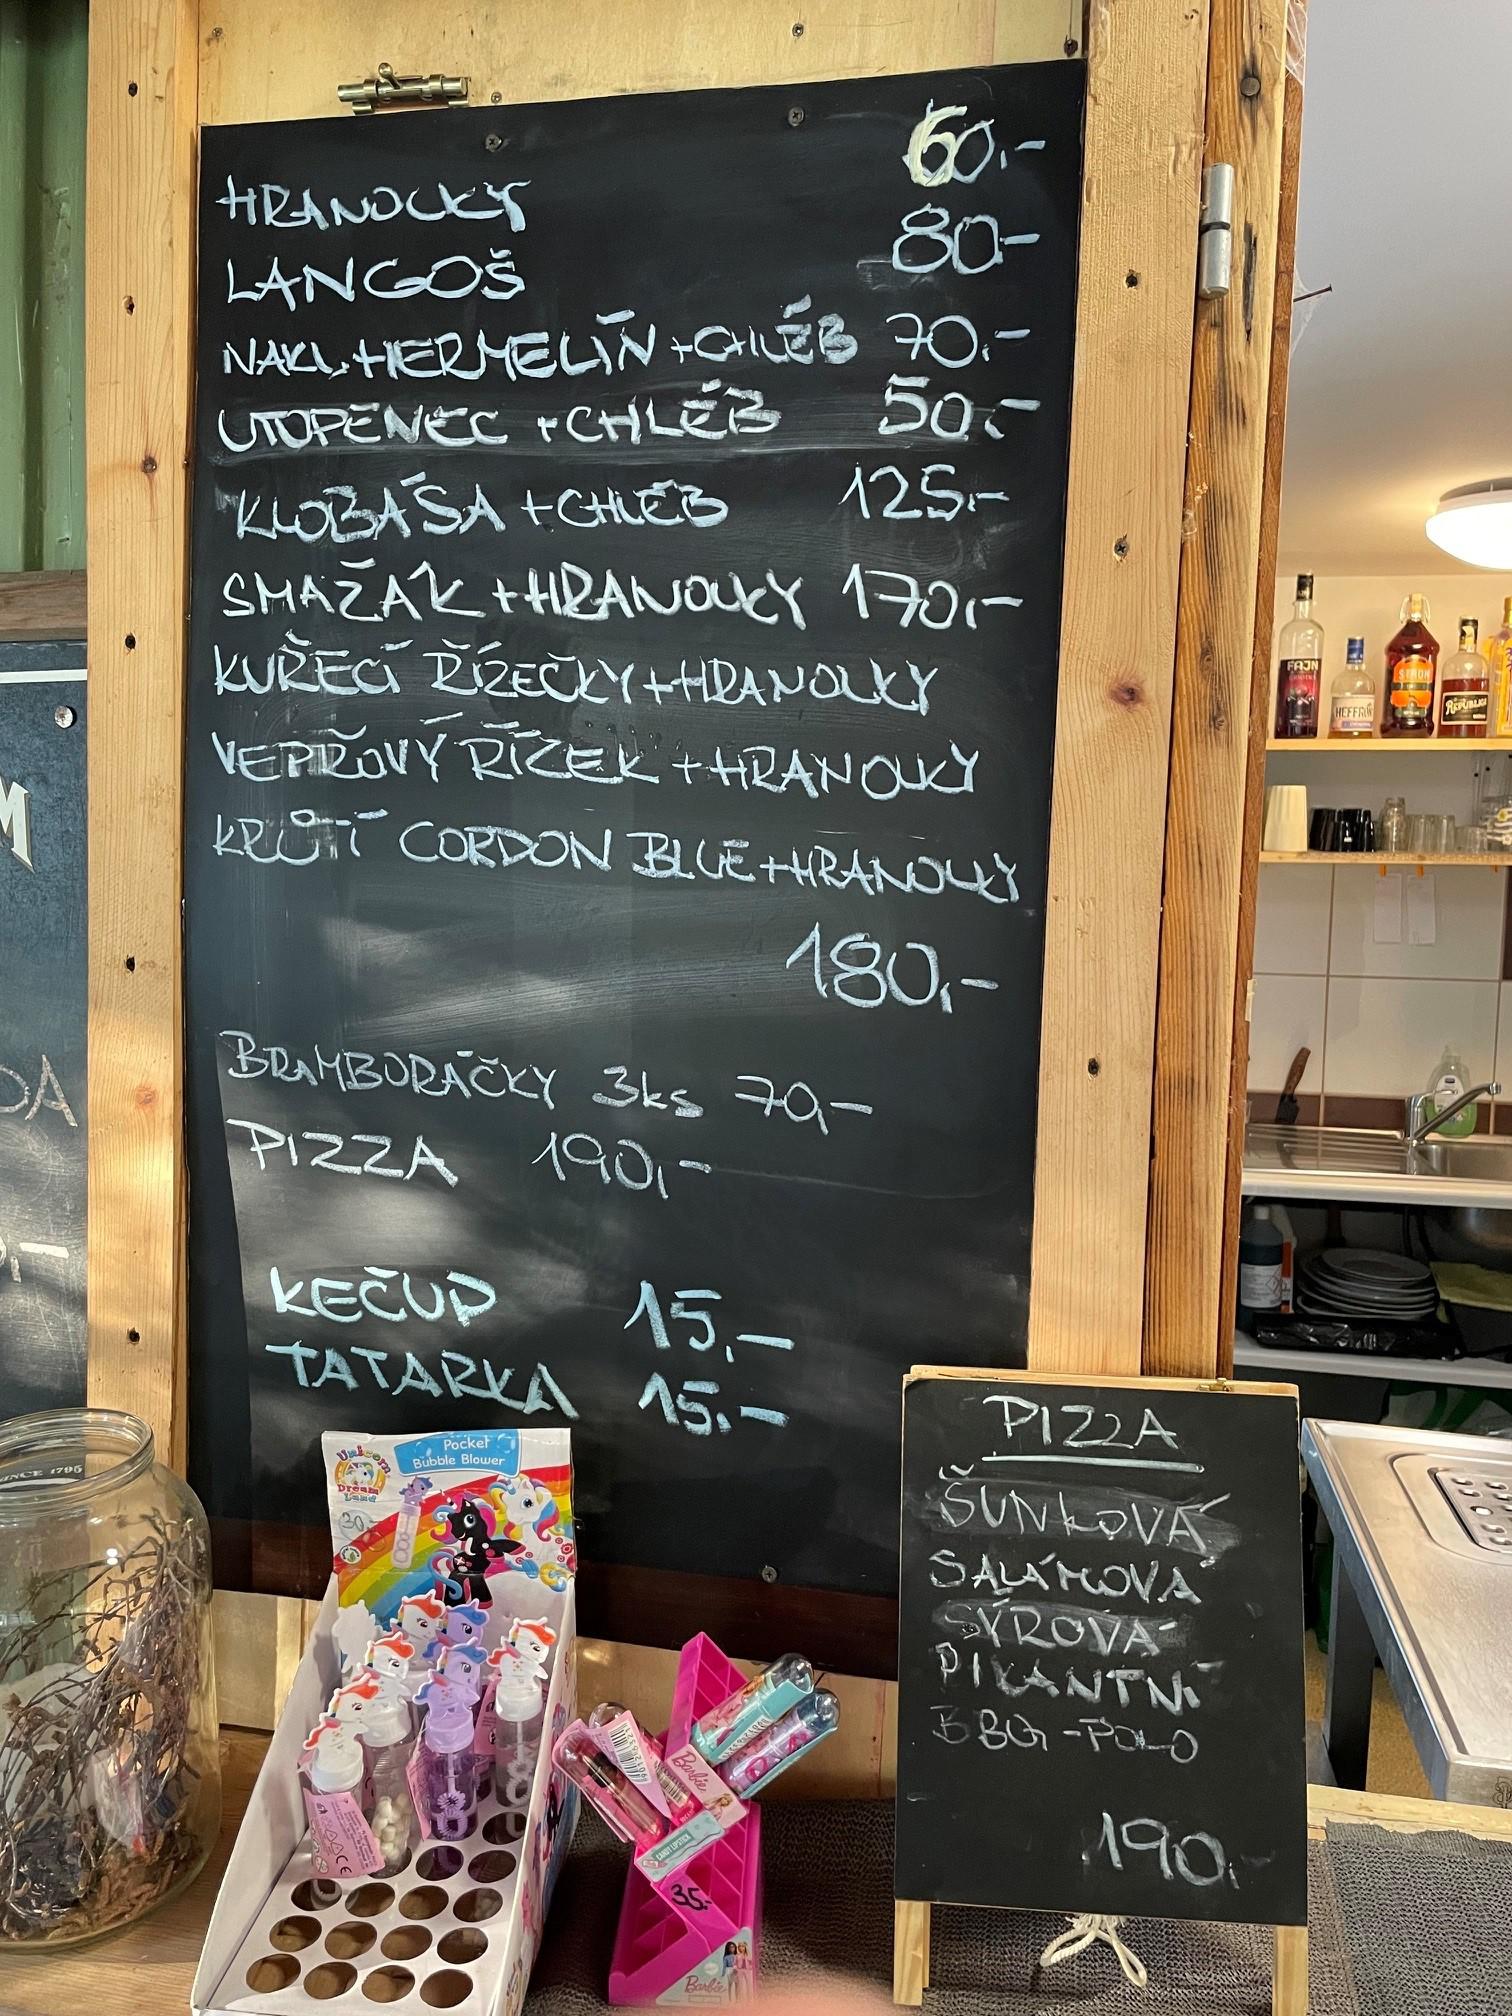 HRANOLKY 60,-
LANGOŠ 80,-
NAKL. HERMELÍN + CHLÉB 70,-
UTOPENEC + CHLÉB 50,-
KLOBÁSA + CHLÉB 125,-
SMAŽÁK + HRANOLKY 170,-
KUŘECÍ ŘÍZEČKY + HRANOLKY
VEPŘOVÝ ŘÍZEK + HRANOLKY
KRŮTÍ CORDON BLUE + HRANOLKY
180,-
BRAMBORÁČKY 3ks 70,-
PIZZA 190,-
KEČUP 15,-
TATARKA 15,-
M
DA
,-
SINCE 1795
Unicorn
Dream
Land
Pocket
Bubble Blower
30,-
Barbie
CANDY LIPSTICK
35,-
Barbie
PIZZA
ŠUNKOVÁ
SALÁMOVÁ
SÝROVÁ
PIKANTNÍ
BBQ - POLO
190,-
FAJN
HEFFRON
STROH
REPUBLICA